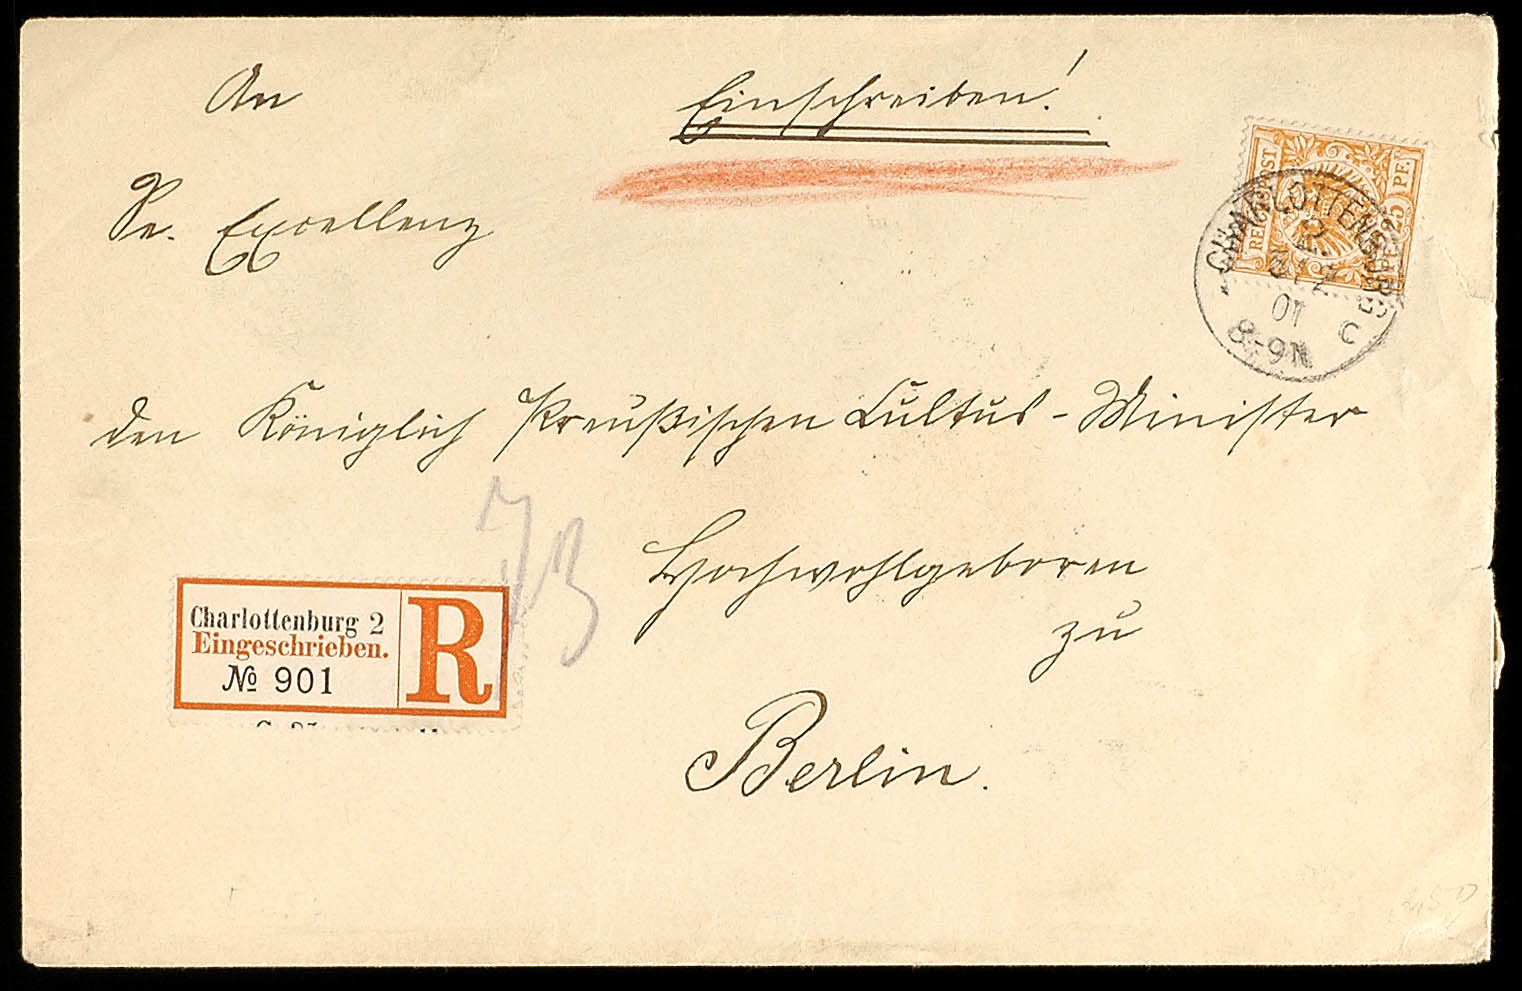 An
Einschreiben!
Se. Excellenz
REICHSPOST
25 PF.
CHARLOTTENBURG
2
01
8-9N
C
den Königlich Preußischen Cultus-Minister
Hochwohlgeboren
zu
Berlin.
Charlottenburg 2
Eingeschrieben.
№ 901
R